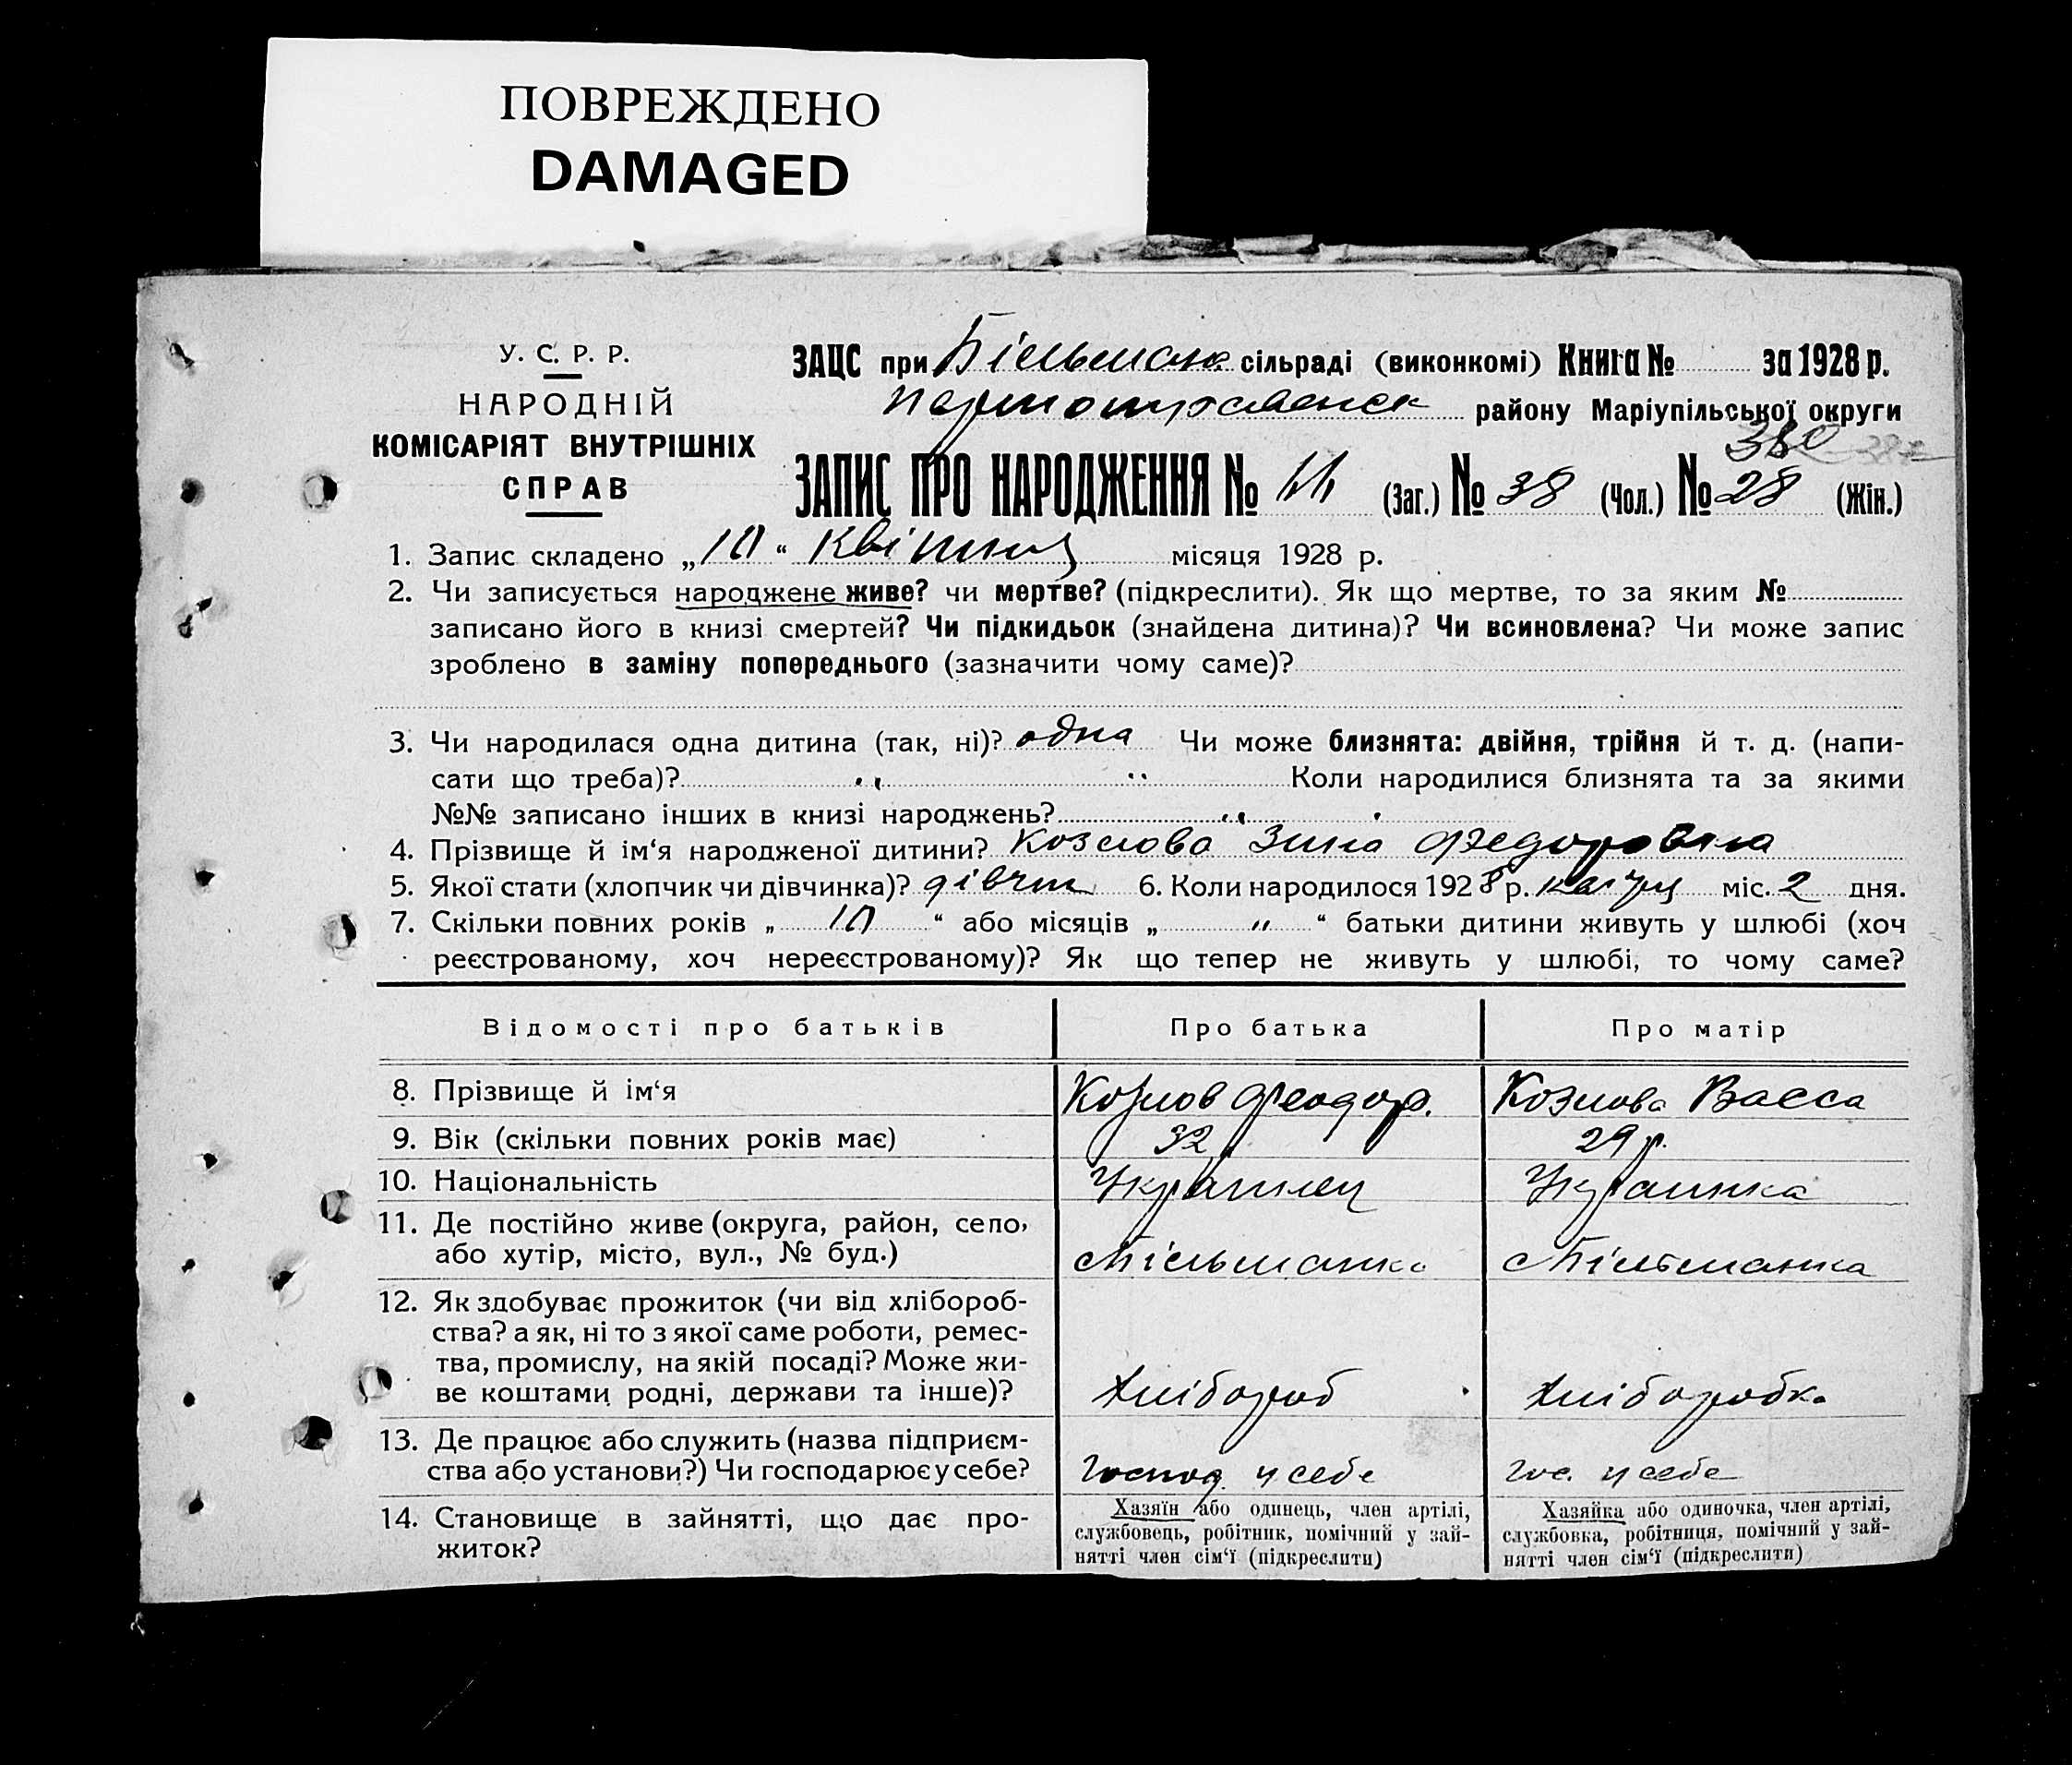 ПОВРЕЖДЕНО
DAMAGED
У. С. Р. Р.
НАРОДНІЙ
КОМІСАРІЯТ ВНУТРІШНІХ
СПРАВ
ЗАЦС при Більманк. сільраді (виконкомі) Книга № за 1928 р.
району Маріупільської округи
380
ЗАПИС ПРО НАРОДЖЕННЯ № (Заг.) № 38 (Чол.) № 28 (Жін.)
1. Запис складено „10“ Квітня місяця 1928 р.
2. Чи записується народжене живе? чи мертве? (підкреслити). Як що мертве, то за яким №
записано його в книзі смертей? Чи підкидьок (знайдена дитина)? Чи всиновлена? Чи може запис
зроблено в заміну попереднього (зазначити чому саме)?
3. Чи народилася одна дитина (так, ні)? одна Чи може близнята: двійня, трійня й т. д. (напи-
сати що треба)? „ „ Коли народилися близнята та за якими
№№ записано інших в книзі народжень? „
4. Прізвище й ім‘я народженої дитини? Козлова Зина Федоровна
5. Якої стати (хлопчик чи дівчинка)? дівчин 6. Коли народилося 1928 р. міс. 2 дня.
7. Скільки повних років „ 10 “ або місяців „ „ “ батьки дитини живуть у шлюбі (хоч
реєстрованому, хоч нереєстрованому)? Як що тепер не живуть у шлюбі, то чому саме?
Відомості про батьків Про батька Про матір
8. Прізвище й ім‘я Козлов Феодор. Козлова Васса
9. Вік (скільки повних років має) 32 29 р.
10. Національність Украинец Украинка
11. Де постійно живе (округа, район, село,
або хутір, місто, вул., № буд.) с Більманка с Більманка
12. Як здобуває прожиток (чи від хлібороб-
ства? а як, ні то з якої саме роботи, ремес-
тва, промислу, на якій посаді? Може жи-
ве коштами родні, держави та інше)? Хлібороб Хліборобка
13. Де працює або служить (назва підприєм-
ства або установи?) Чи господарює у себе? Господ. у себе Гос. у себе
14. Становище в зайнятті, що дає про-
житок?
Хазяїн або одинець, член артілі,
службовець, робітник, помічний у зай-
нятті член сім‘ї (підкреслити)
Хазяйка або одиночка, член артілі,
службовка, робітниця, помічний у зай-
нятті член сім‘ї (підкреслити)